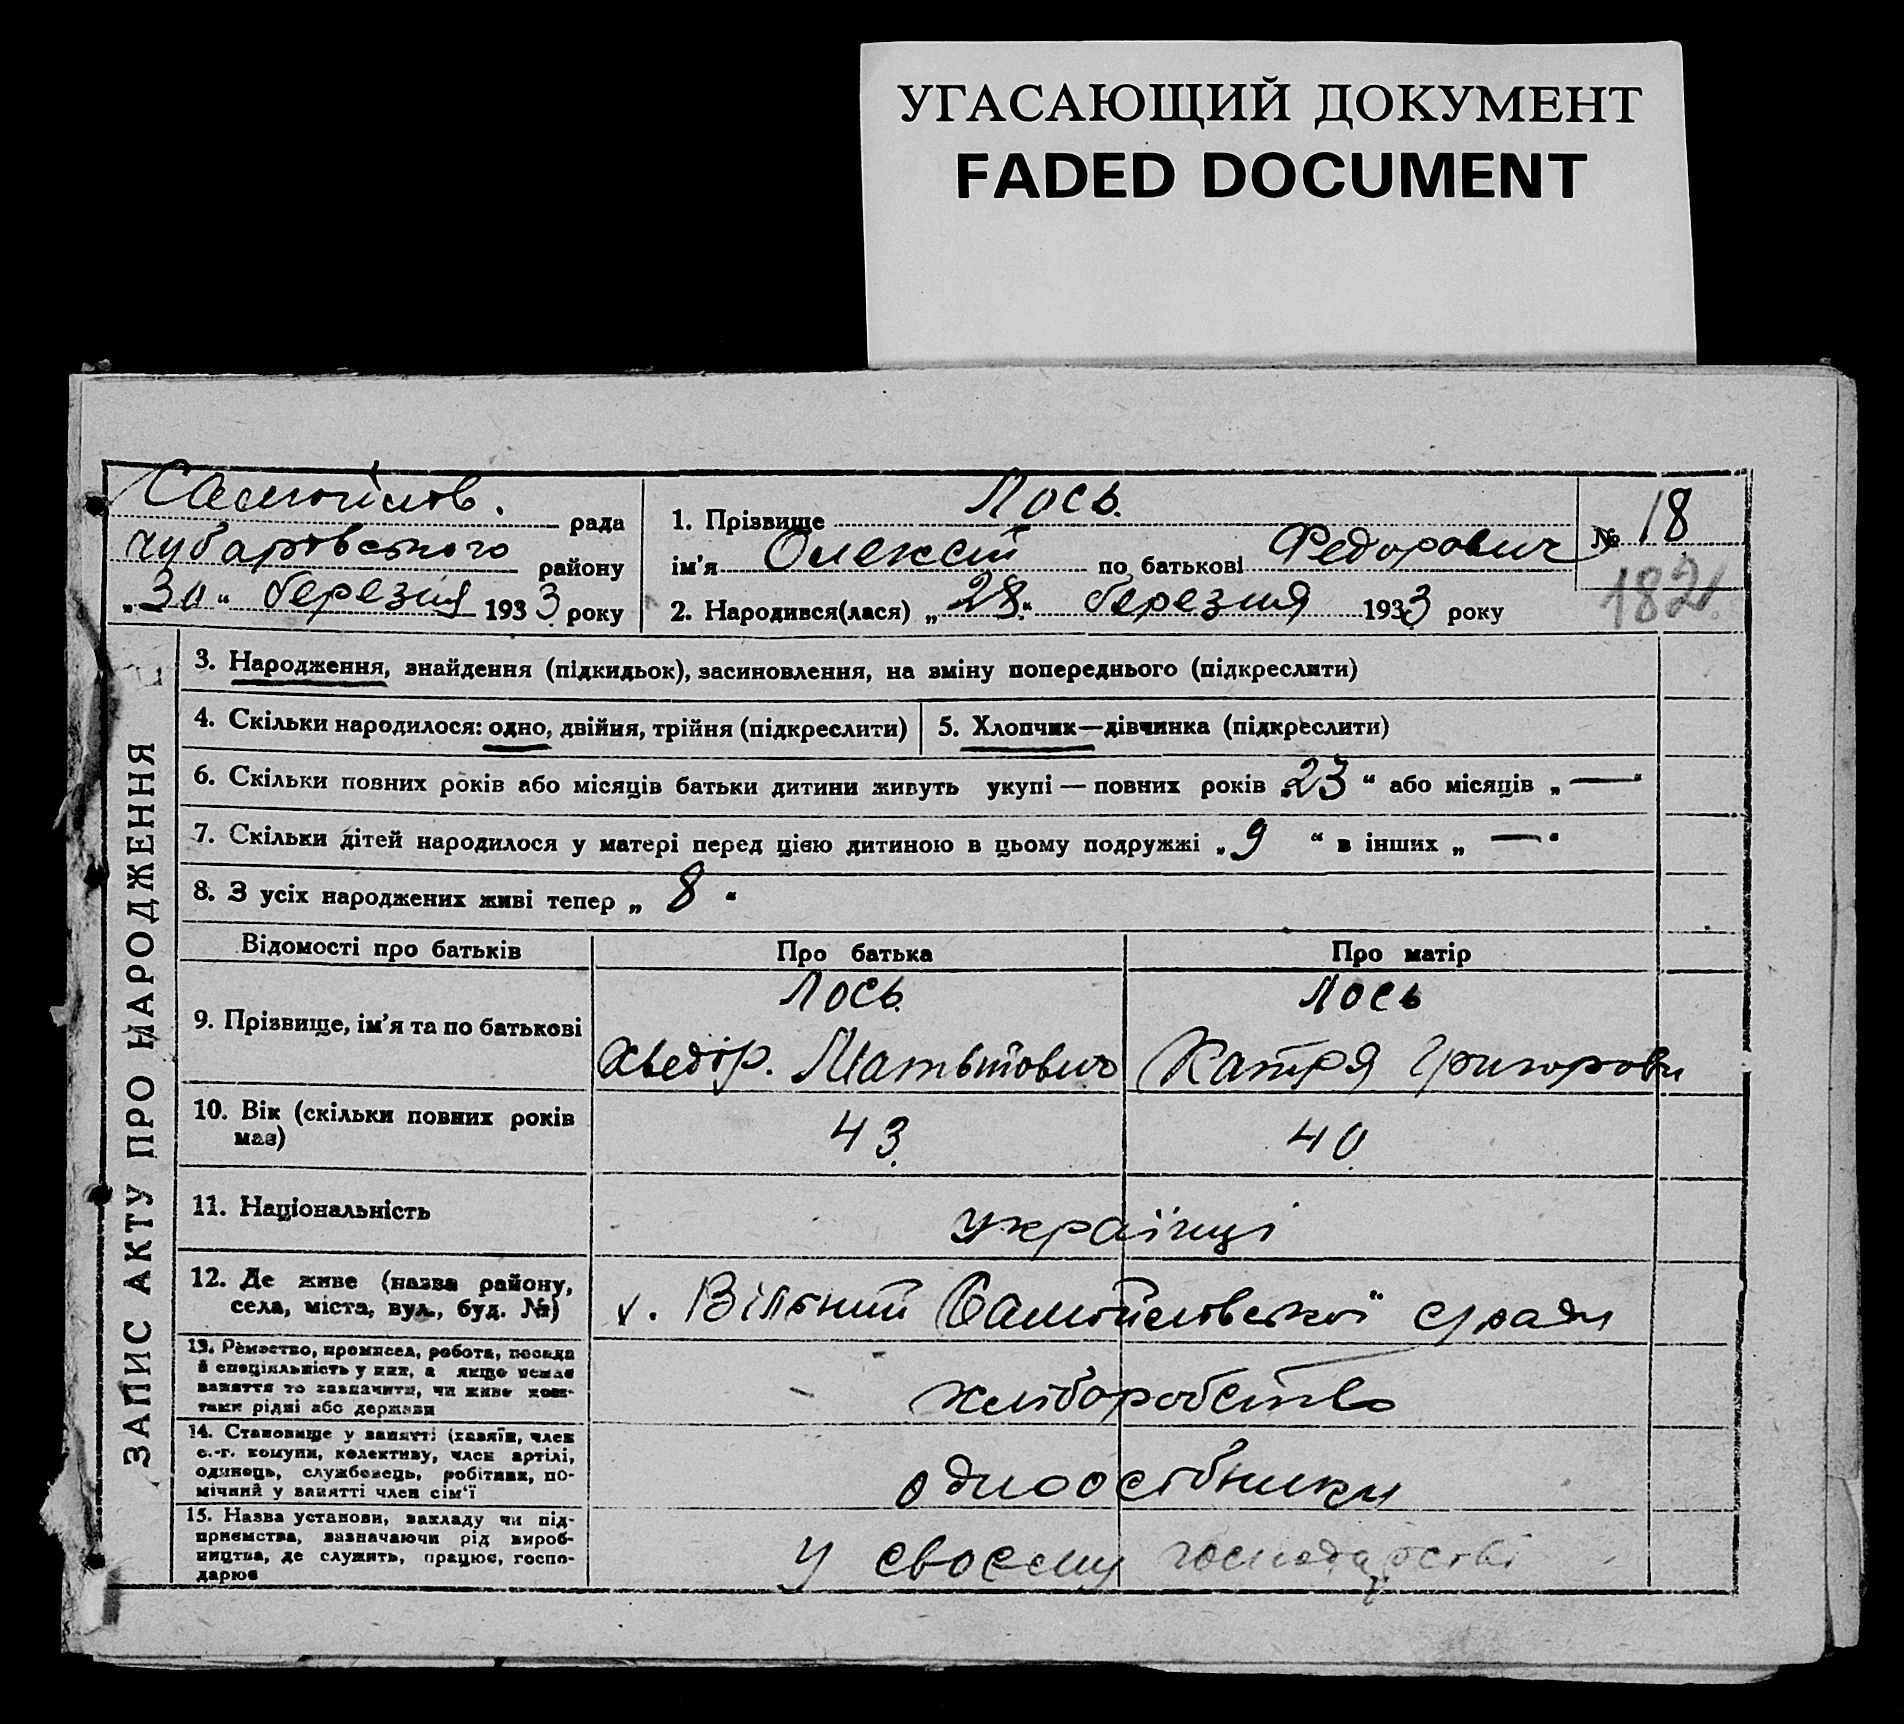 УГАСАЮЩИЙ ДОКУМЕНТ
FADED DOCUMENT
Самойлов. рада
Чубарівського району
„30“ березня 1933 року
1. Прізвище Лось.
ім'я Олексій по батькові Федорович
2. Народився(лася) „28“ березня 1933 року
№ 18
182
ЗАПИС АКТУ ПРО НАРОДЖЕННЯ
3. Народження, знайдення (підкидьок), засиновлення, на зміну попереднього (підкреслити)
4. Скільки народилося: одно, двійня, трійня (підкреслити)
5. Хлопчик—дівчинка (підкреслити)
6. Скільки повних років або місяців батьки дитини живуть укупі — повних років „23“ або місяців „—“
7. Скільки дітей народилося у матері перед цією дитиною в цьому подружжі „9“ в інших „—“
8. З усіх народжених живі тепер „8“
Відомості про батьків Про батька Про матір
9. Прізвище, ім'я та по батькові
Лось. Лось
Хведір. Матвійович Катря Григоровн
10. Вік (скільки повних років
має)
43. 40.
11. Національність
українці
12. Де живе (назва району,
села, міста, вул., буд. №)
х. Вільний Самойлівської с/ради
13. Ремество, промисел, робота, посада
й спеціяльність у них, а якщо немає
заняття то зазначити, чи живе кош-
тами рідні або держави
хліборобство
14. Становище у занятті (хазяїн, член
с.-г. комуни, колективу, член артілі,
одинець, службовець, робітник, по-
мічний у занятті член сім'ї
одноосібники
15. Назва установи, закладу чи під-
приємства, зазначаючи рід вироб-
ництва, де служить, працює, госпо-
дарює
у своєму господарстві